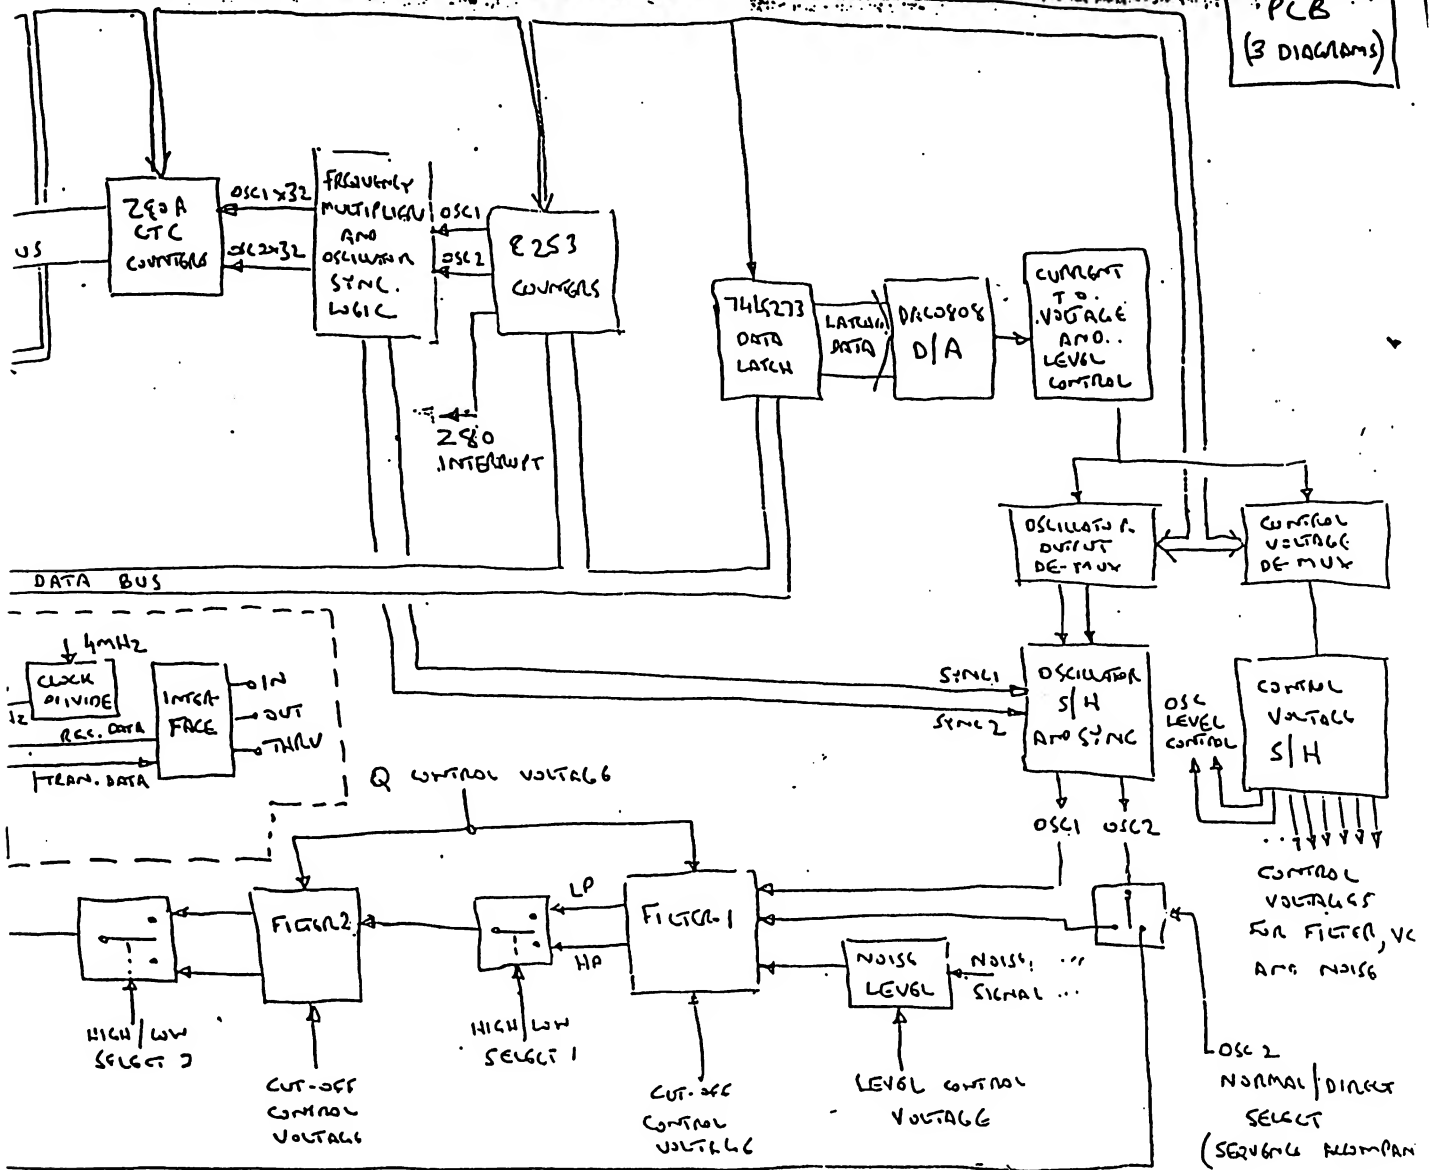 PCB
(3 DIAGRAMS)
Z80A
CTC
COUNTERS
US
OSC1x32
OSC2x32
FREQUENCY
MULTIPLIER
AND
OSCILLATOR
SYNC.
LOGIC
OSC1
OSC2
8253
COUNTERS
Z80
INTERRUPT
74LS273
DATA
LATCH
DATA
DAC0808
D/A
CURRENT
TO
VOLTAGE
AND
LEVEL
CONTROL
OSCILLATOR
OUTPUT
DE-MUX
CONTROL
VOLTAGE
DE-MUX
DATA BUS
4MHz
CLOCK
DIVIDE
Hz
REC. DATA
TRAN. DATA
INTER-
FACE
IN
OUT
THRU
SYNC1
SYNC2
OSCILLATOR
S/H
AND SYNC
OSC
LEVEL
CONTROL
CONTROL
VOLTAGE
S/H
Q CONTROL VOLTAGE
OSC1 OSC2
CONTROL
VOLTAGES
FOR FILTER, VC
AND NOISE
FILTER 2
LP
HP
FILTER 1
NOISE
LEVEL
NOISE
SIGNAL
HIGH/LOW
SELECT 2
HIGH/LOW
SELECT 1
CUT-OFF
CONTROL
VOLTAGE
CUT-OFF
CONTROL
VOLTAGE
LEVEL CONTROL
VOLTAGE
OSC 2
NORMAL/DIRECT
SELECT
(SEQUENCE ACCOMPAN